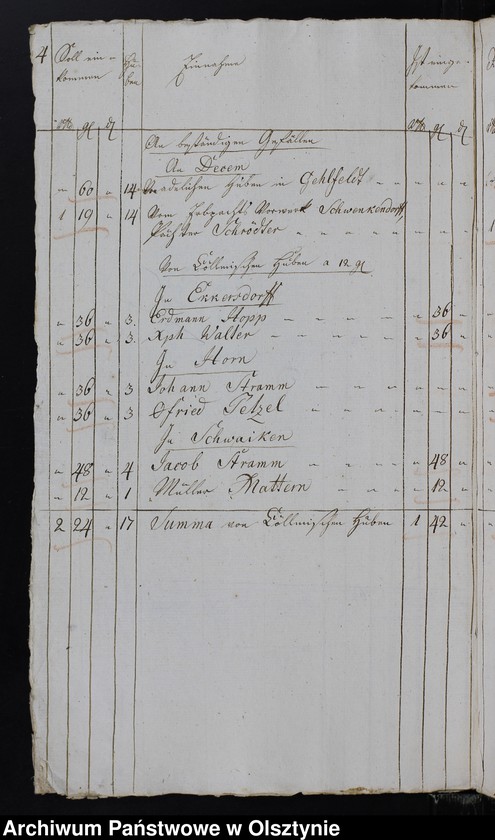 4 Soll ein- Hu- Einnahme Ist einge-
kommen ben kommen
rth gl d rth gl d
An beständigen Gefällen
An Decem
" 60 " 14 Von adelichen Huben in Gehlfeldt " " " "
1 19 " 14 Vom Erbpachts Vorwerk Schwenkendorff
Pächter Schrödter " " " " " "
Von Cöllmischen Huben a 12 gl
In Ekkersdorff
" 36 " 3. Erdmann Hopp " 36 "
" 36 " 3. Xph Walter " 36 "
In Horn
" 36 " 3 Johann Stramm " " "
" 36 " 3 Gfried Tetzel " " "
In Schwaiken
" 48 " 4 Jacob Stramm " 48 "
" 12 " 1 Müller Mattern " 12 "
2 24 " 17 Summa von Cöllmischen Huben 1 42 "
Archiwum Państwowe w Olsztynie